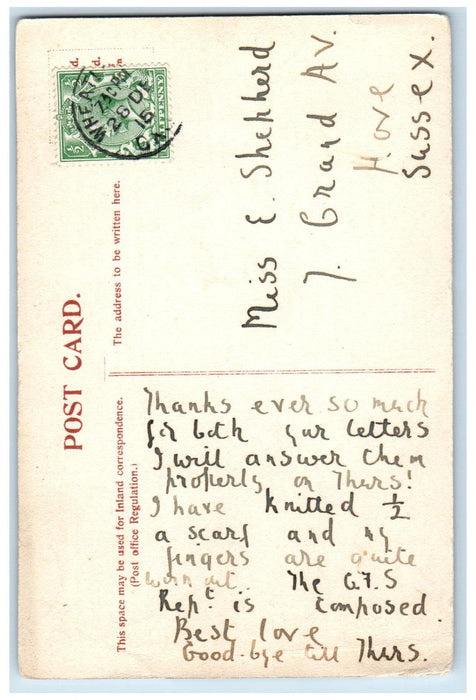 POST CARD.
The address to be written here.
This space may be used for Inland correspondence.
(Post office Regulation.)
Miss E. Shepherd
7. Grand Av.
Hove
Sussex.
Thanks ever so much
for both your letters
I will answer them
properly on Thurs!
I have knitted ½
a scarf and my
fingers are quite
worn out. The G.F.S
Rept is composed.
Best love
Good-bye till Thurs.